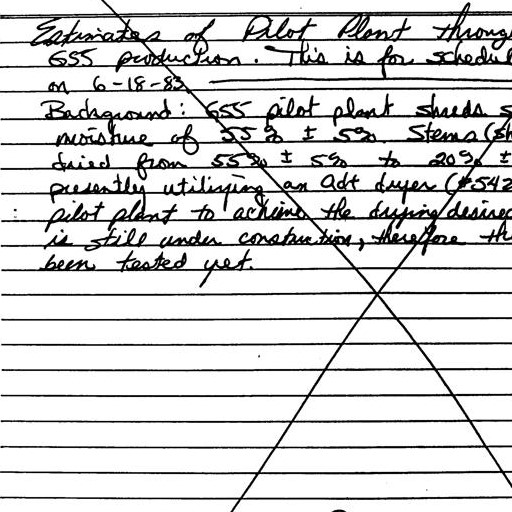 Estimates of Pilot Plant throug
GSS production. This is for schedul
on 6-18-83
Background: GSS pilot plant shreds s
moisture of 55% ± 5%. Stems (sh
dried from 55% ± 5% to 20% ±
presently utilizing an Adt dryer (#542
pilot plant to achieve the drying desired
is still under construction, therefore th
been tested yet.